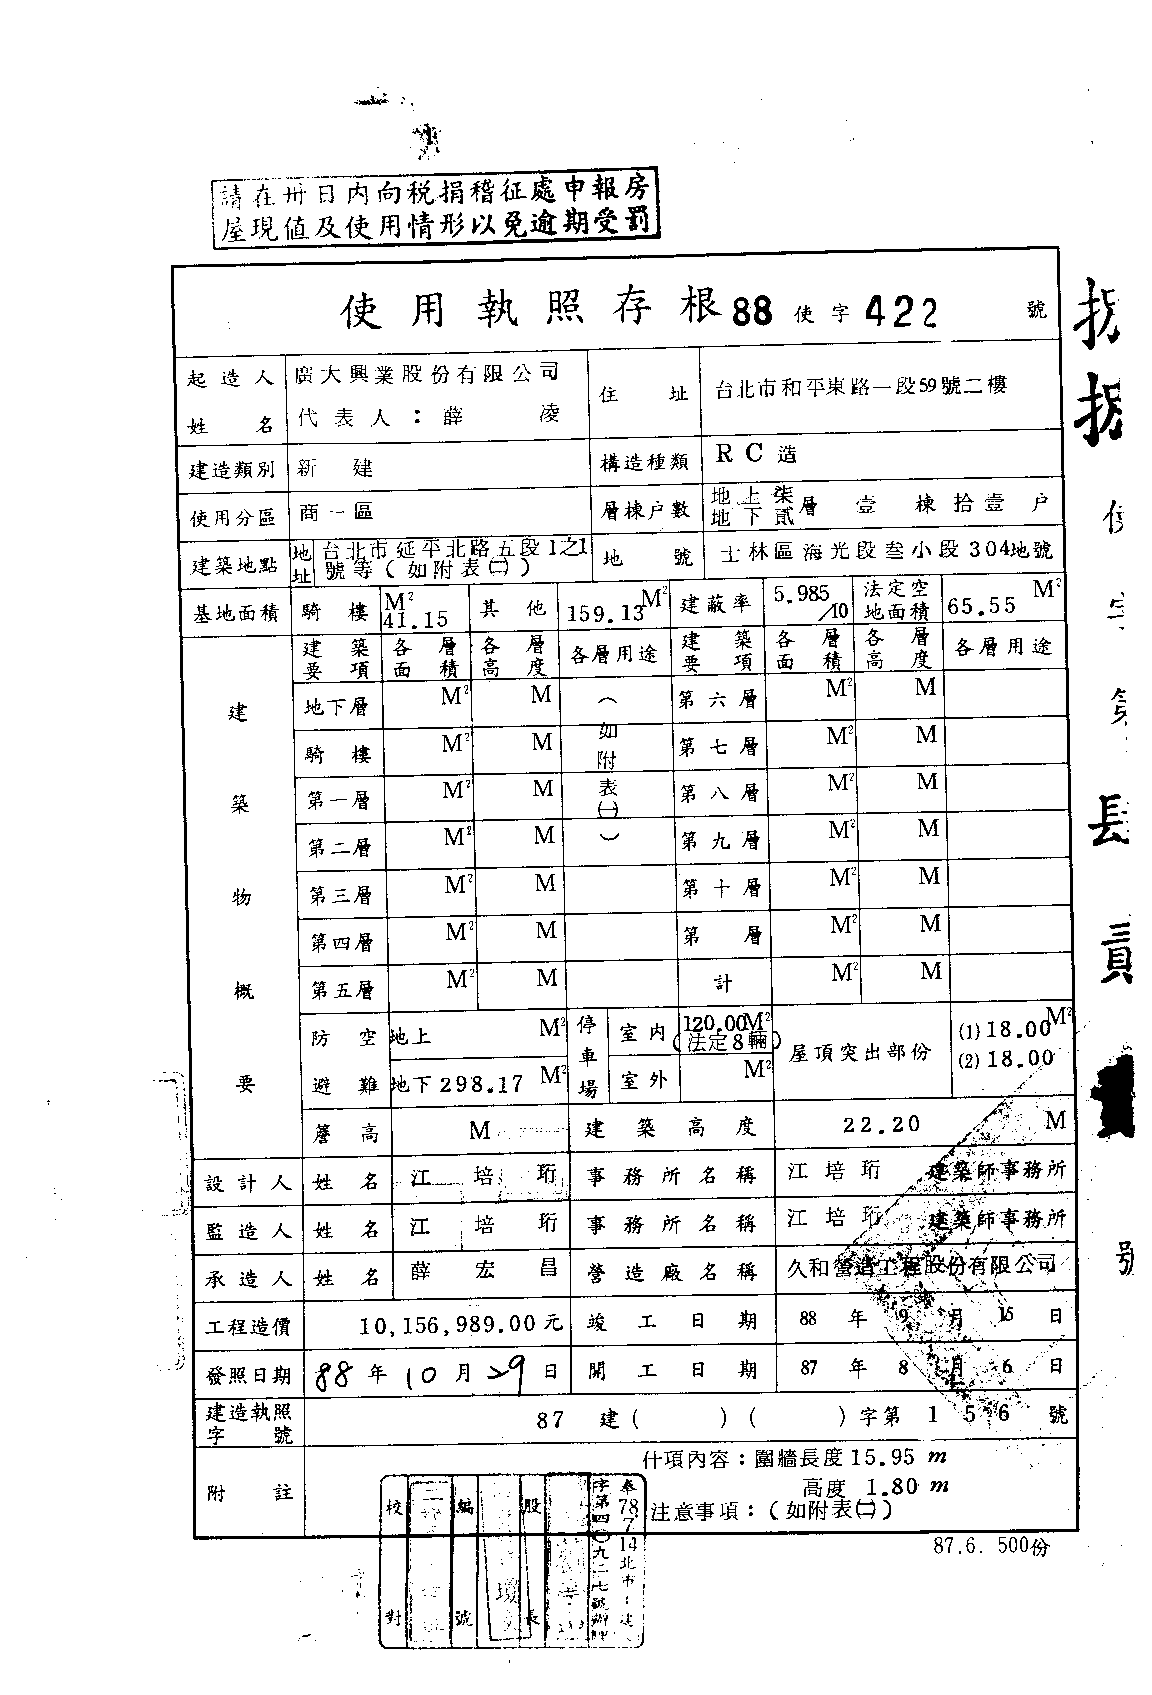 請在卅日內向稅捐稽征處申報房
屋現值及使用情形以免逾期受罰
使用執照存根88使字422號
起造人姓名 廣大興業股份有限公司 代表人：薛凌 住址 台北市和平東路一段59號二樓
建造類別 新建 構造種類 RC造
使用分區 商一區 層棟户數 地上柒地下貳層壹棟拾壹户
建築地點 地址 台北市延平北路五段1之1號等（如附表㈡） 地號 士林區海光段叁小段304地號
基地面積 騎樓 M² 41.15 其他 159.13 M² 建蔽率 5.985/10 法定空地面積 65.55 M²
建築物概要
建築要項 各層面積 各層高度 各層用途 建築要項 各層面積 各層高度 各層用途
地下層 M² M （如附表㈠） 第六層 M² M
騎樓 M² M 第七層 M² M
第一層 M² M 第八層 M² M
第二層 M² M 第九層 M² M
第三層 M² M 第十層 M² M
第四層 M² M 第 層 M² M
第五層 M² M 計 M² M
防空避難 地上 M² 停車場 室內 120.00M²（法定8輛） 屋頂突出部份 (1)18.00M²
地下298.17 M² 室外 M² (2)18.00
簷高 M 建築高度 22.20 M
設計人 姓名 江培珩 事務所名稱 江培珩建築師事務所
監造人 姓名 江培珩 事務所名稱 江培珩建築師事務所
承造人 姓名 薛宏昌 營造廠名稱 久和營造工程股份有限公司
工程造價 10,156,989.00元 竣工日期 88年9月15日
發照日期 88年10月29日 開工日期 87年8月6日
建造執照字號 87建（ ）（ ）字第156號
附註 什項內容：圍牆長度15.95 m
高度 1.80 m
注意事項：（如附表㈡）
87.6. 500份
校對
編號
股長
奉78.7.14北市
使字第
號